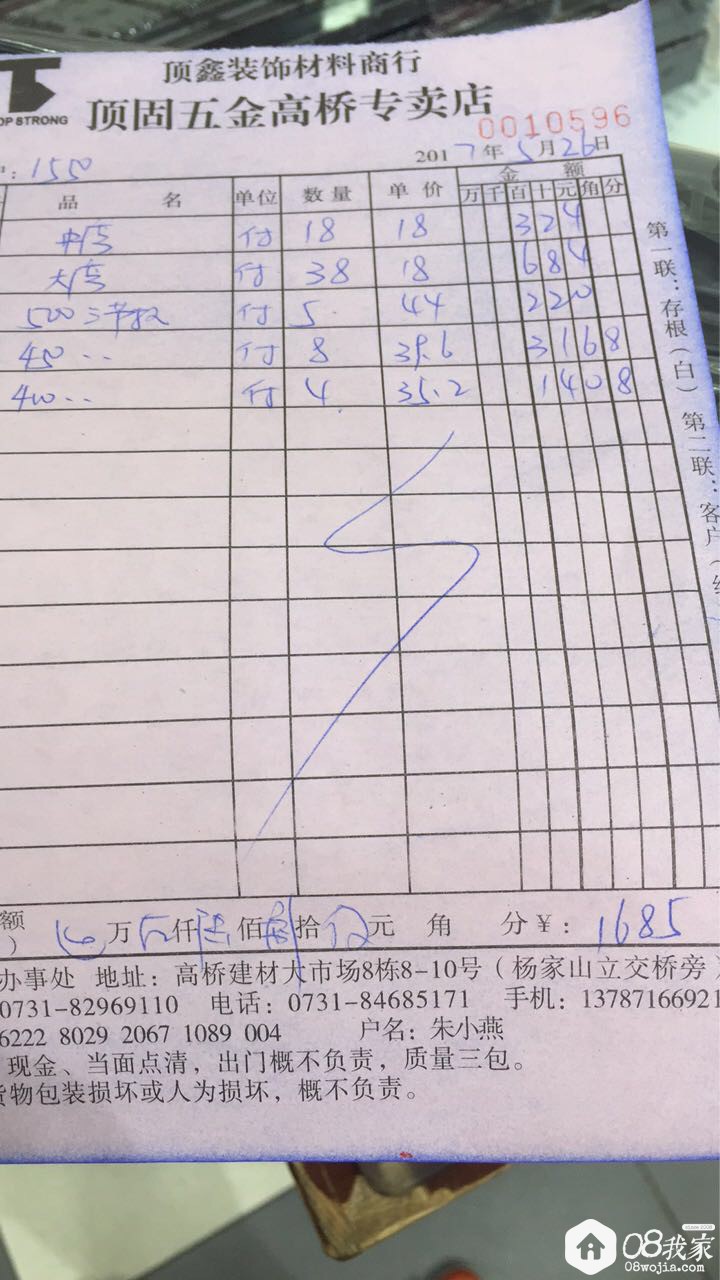 TOP STRONG
顶鑫装饰材料商行
顶固五金高桥专卖店
0010596
: 1550
2017年5月26日
品 名 单位 数量 单价 金额
万 千 百 十 元 角 分
中弯 付 18 18 324
大弯 付 38 18 684
500 三节轨 付 5 44 220
450 〃 付 8 39.6 3168
400 〃 付 4 35.2 1408
第一联:存根(白) 第二联:客户(红
额
) 万 仟 陆 佰 捌 拾 伍 元 角 分 ¥: 1685
办事处 地址:高桥建材大市场8栋8-10号(杨家山立交桥旁)
0731-82969110 电话:0731-84685171 手机:1378716692
6222 8029 2067 1089 004 户名:朱小燕
现金、当面点清,出门概不负责,质量三包。
货物包装损坏或人为损坏,概不负责。
08我家
08wojia.com